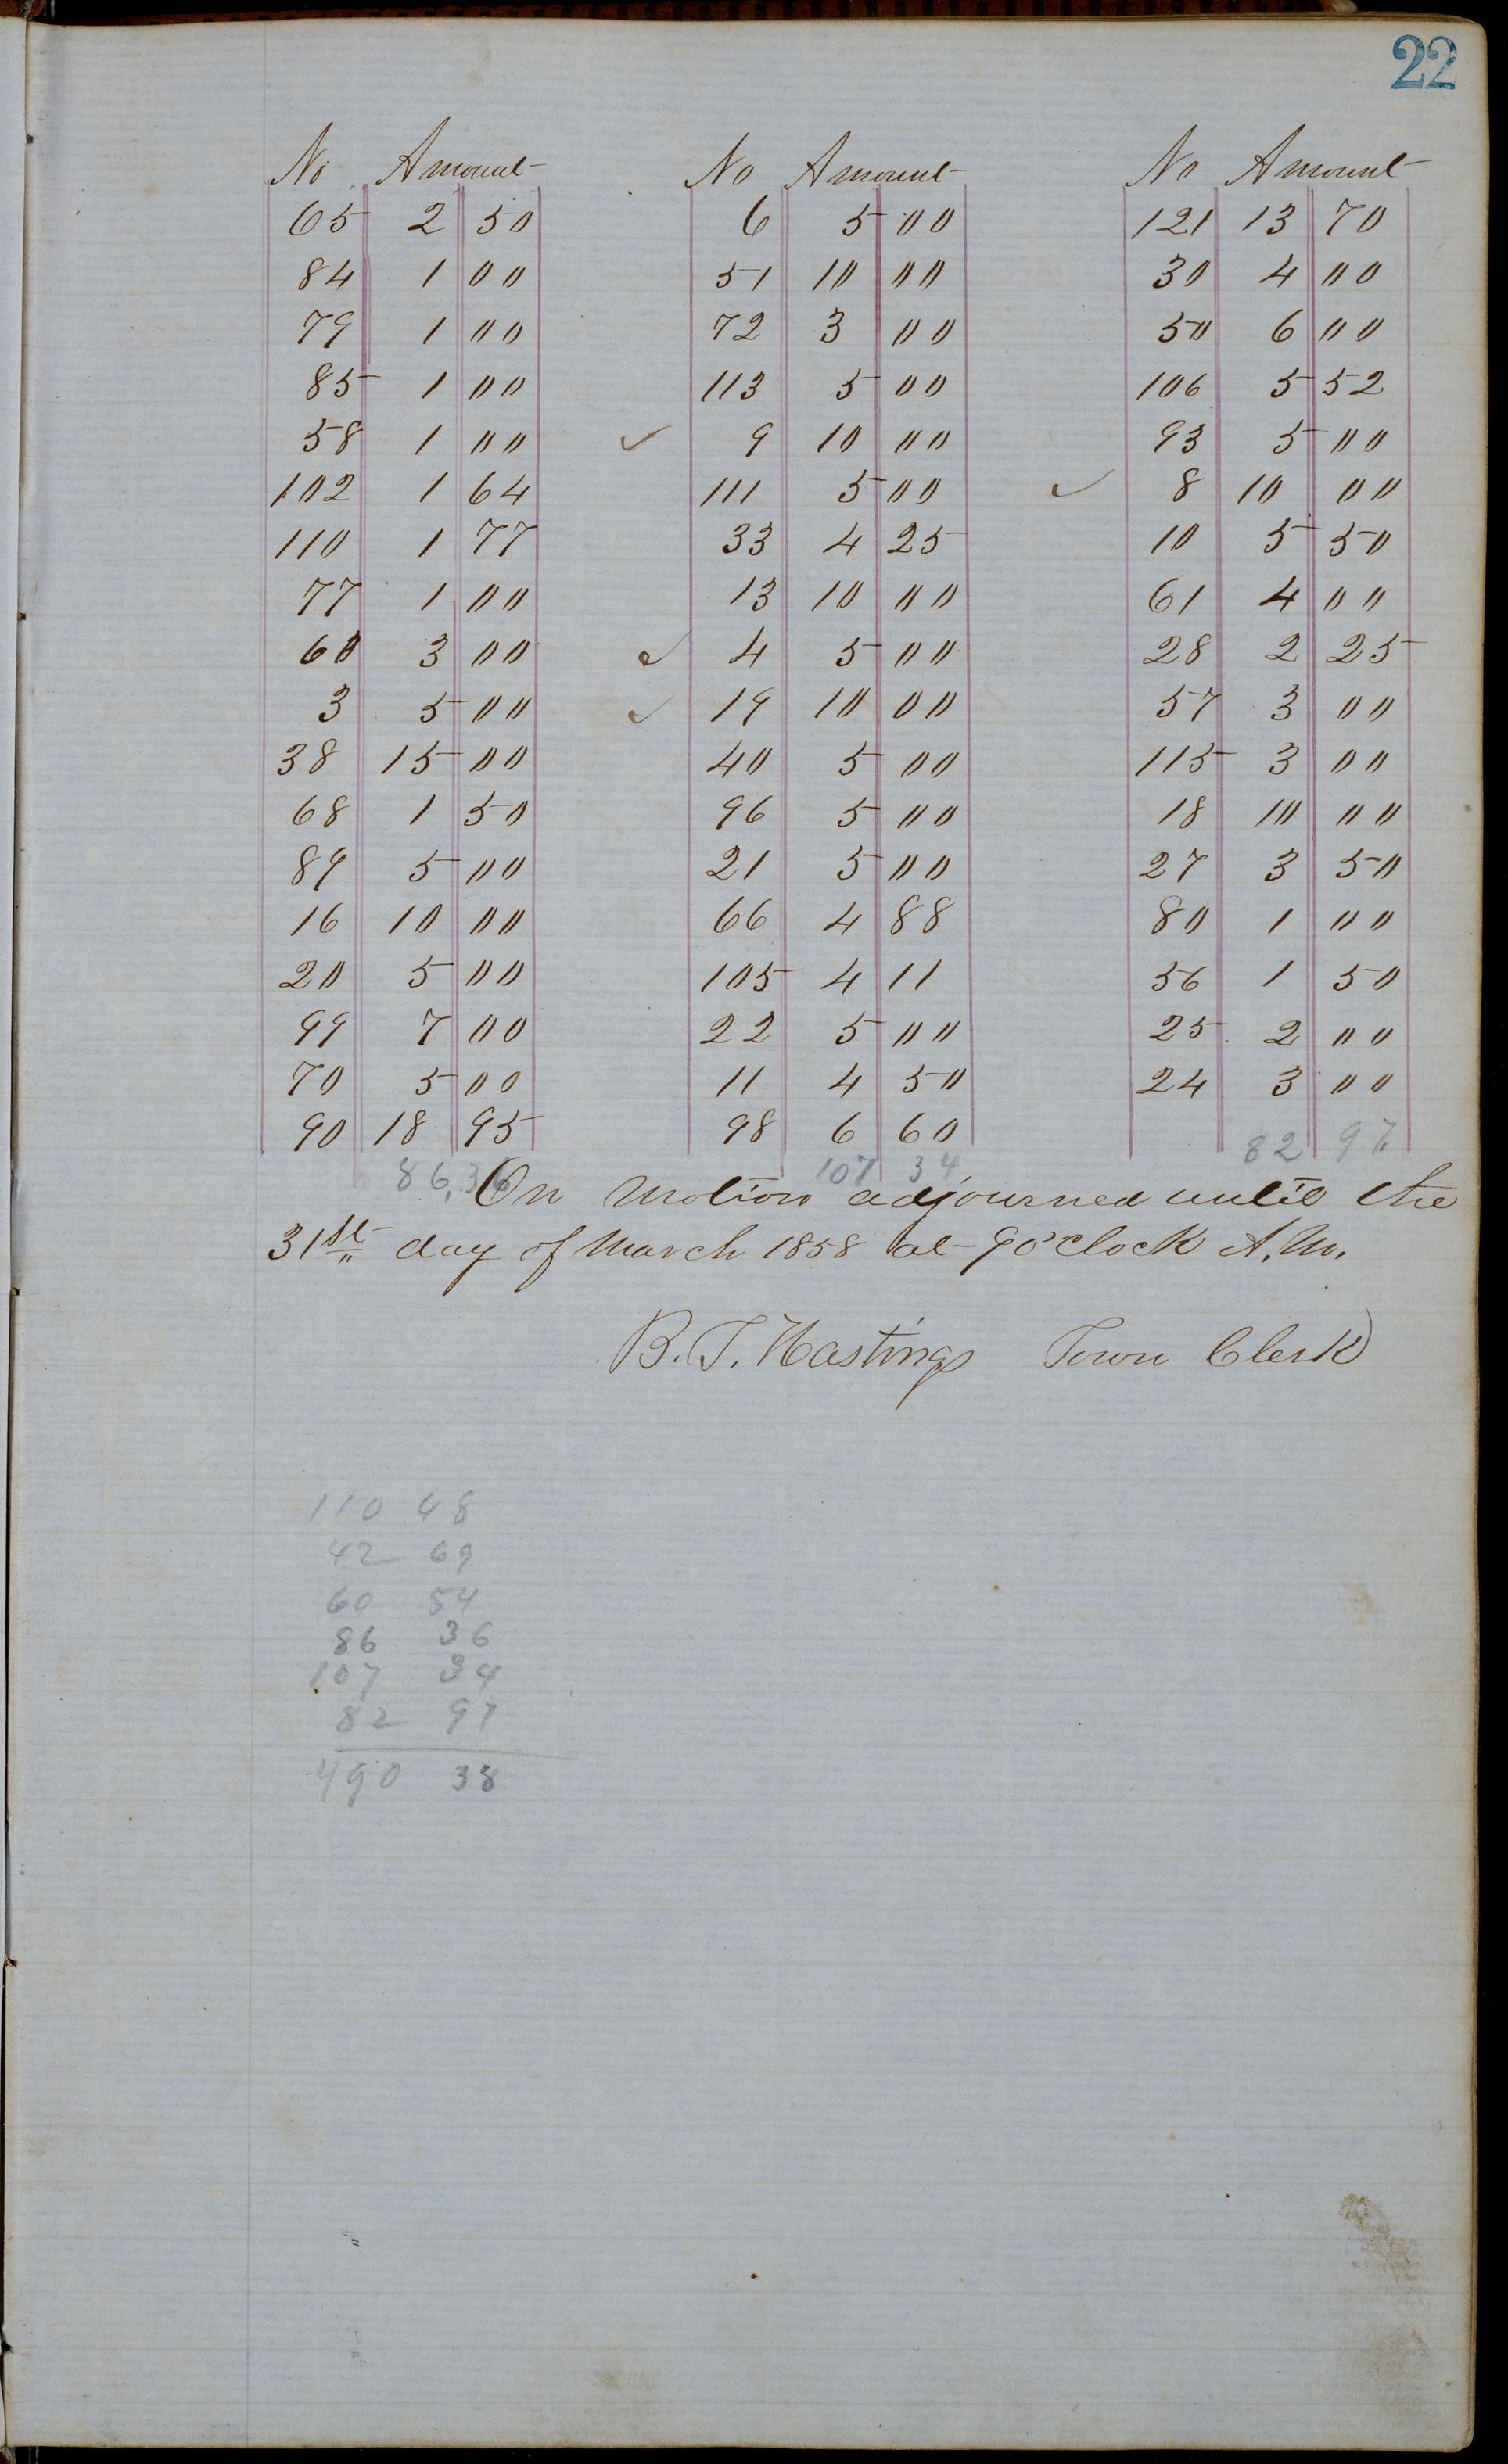 22
No Amount No Amount No Amount
65 2 50 6 5 00 121 13 70
84 1 00 51 10 00 30 4 00
79 1 00 72 3 00 50 6 00
85 1 00 113 5 00 106 5 52
58 1 00 ✓ 9 10 00 93 5 00
102 1 64 111 5 00 ✓ 8 10 00
110 1 77 33 4 25 10 5 50
77 1 00 13 10 00 61 4 00
60 3 00 ✓ 4 5 00 28 2 25
3 5 00 ✓ 19 10 00 57 3 00
38 15 00 40 5 00 115 3 00
68 1 50 96 5 00 18 10 00
89 5 00 21 5 00 27 3 50
16 10 00 66 4 88 80 1 00
20 5 00 105 4 11 56 1 50
99 7 00 22 5 00 25 2 00
70 5 00 11 4 50 24 3 00
90 18 95 98 6 60
86,36 107 34 82 97
On motion adjourned until the
31st day of March 1858 at 9 o'clock A.M.
B. T. Hastings Town Clerk
110 48
42 69
60 54
86 36
107 34
82 97
490 38